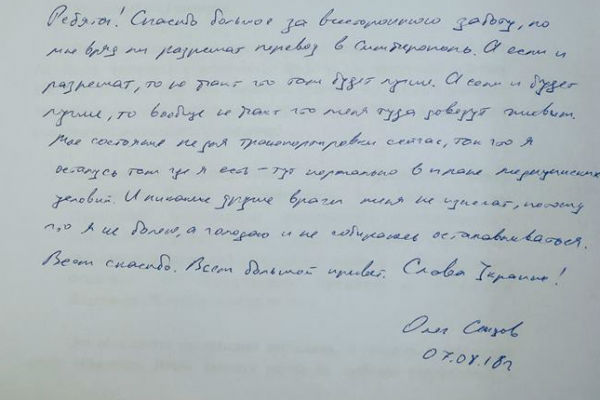 Ребята! Спасибо большое за всестороннюю заботу, но
мне вряд ли разрешат перевод в Симферополь. А если и
разрешат, то не факт что там будет лучше. А если и будет
лучше, то вообще не факт что меня туда довезут живым.
Мое состояние не для транспортировки сейчас, так что я
останусь там где я есть – тут нормально в плане медицинских
условий. И никакие другие врачи меня не излечат, потому
что я не болею, а голодаю и не собираюсь останавливаться.
Всем спасибо. Всем большой привет. Слава Україні!
Олег Сенцов
07.08.18г